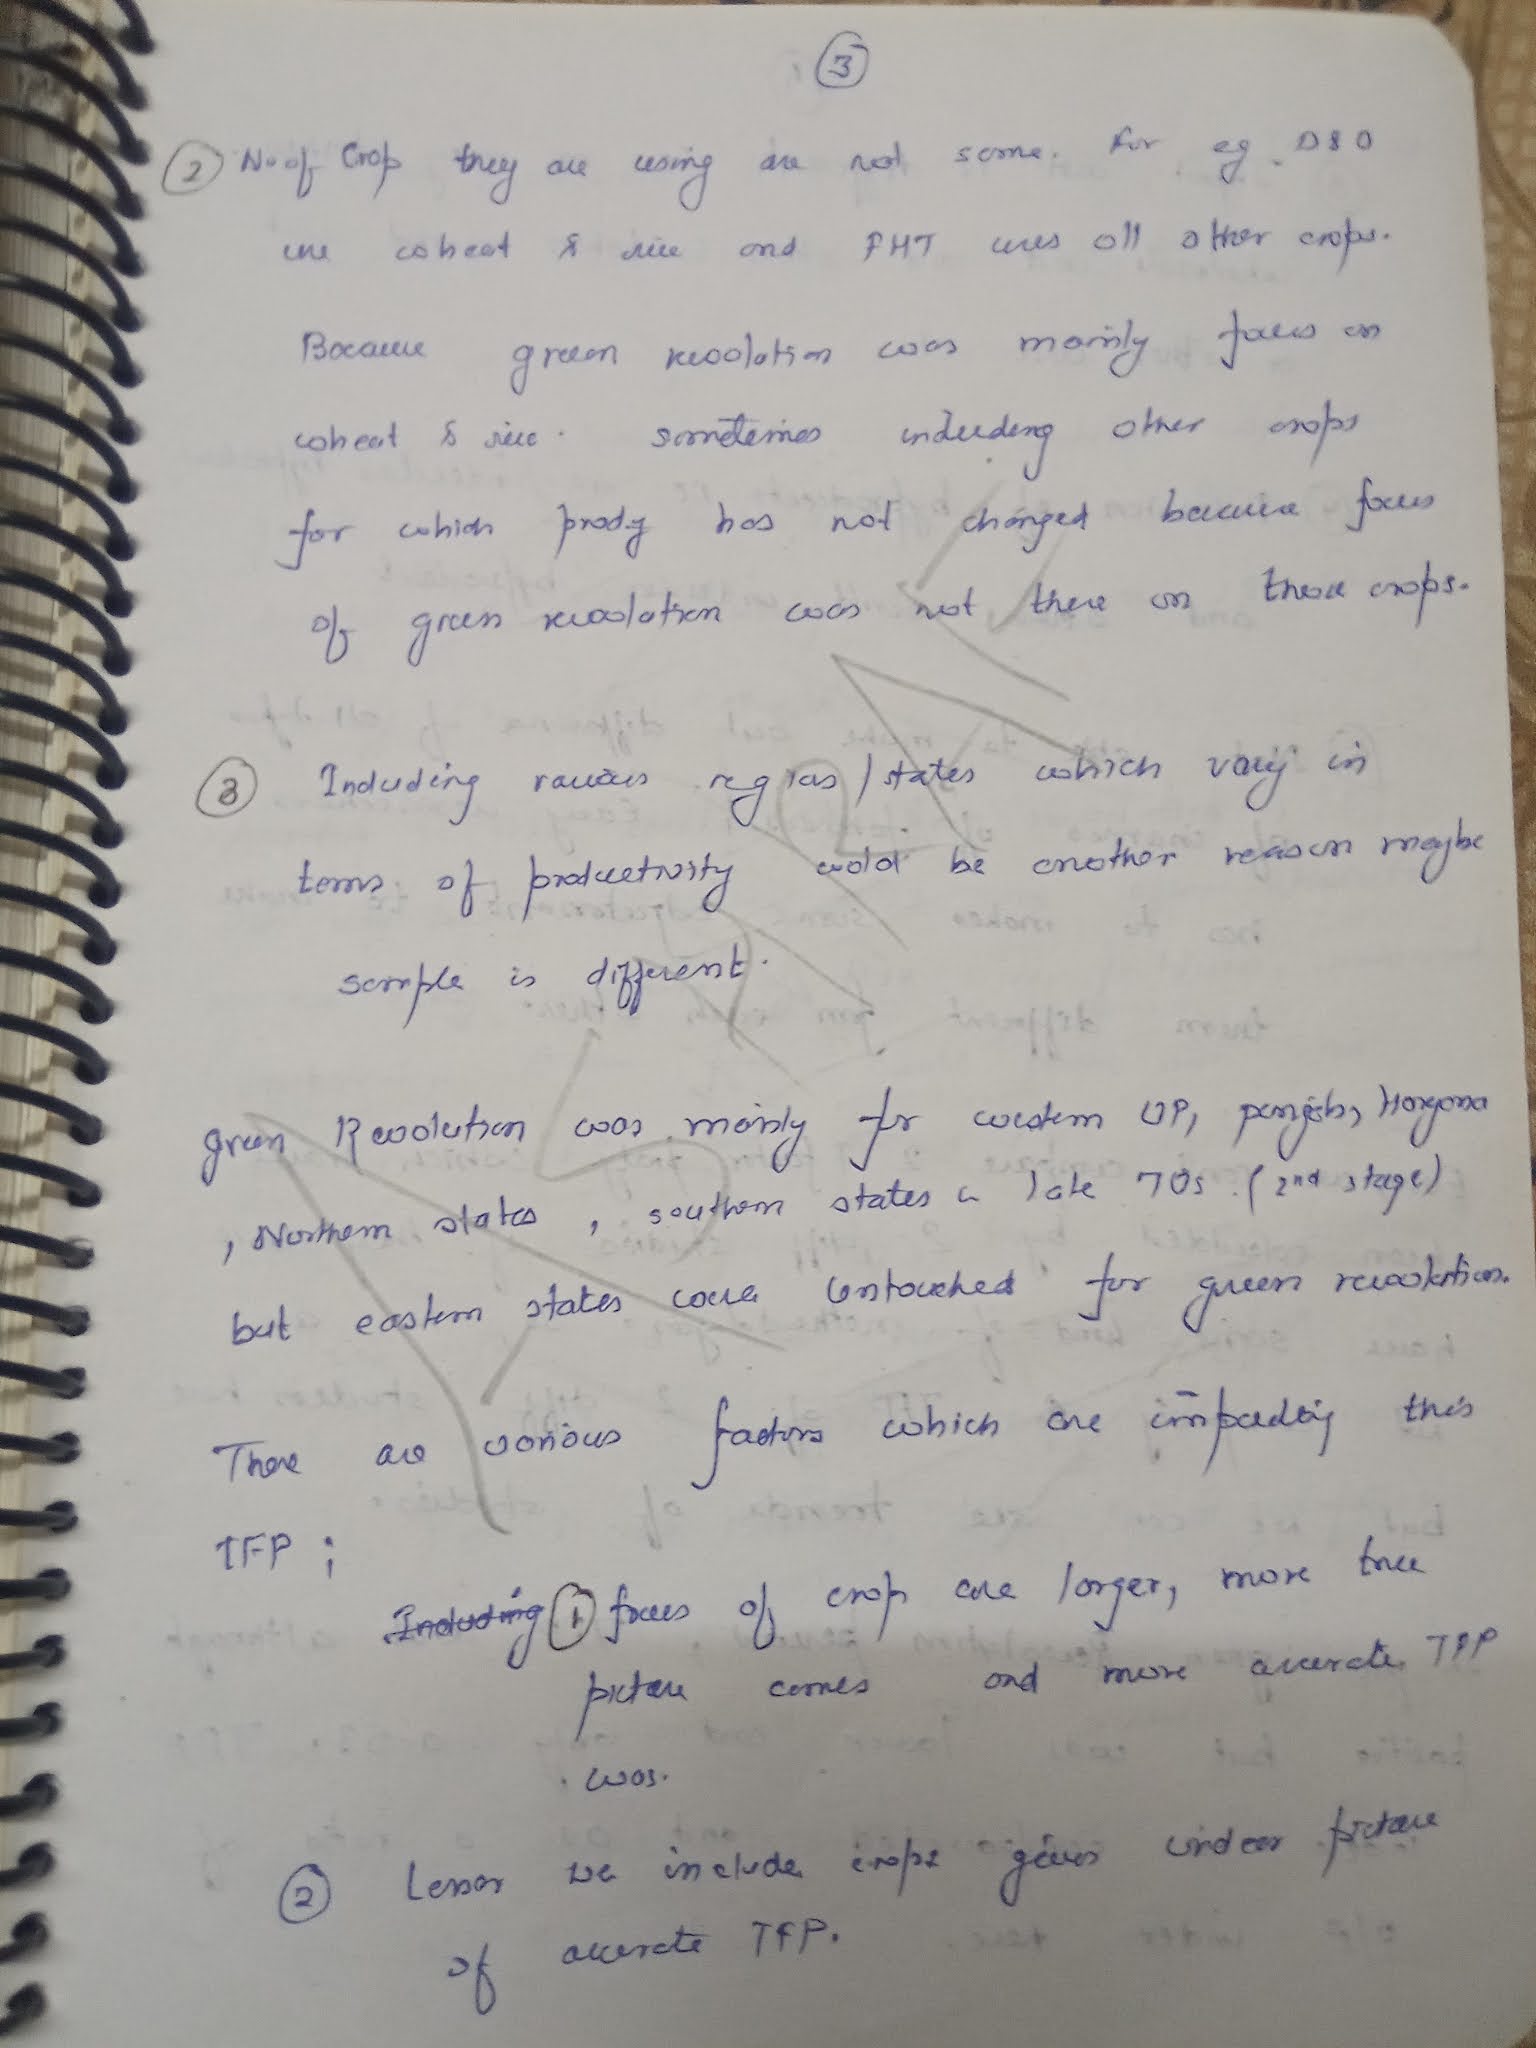 3
2 No of Crop they are using are not same. For eg. D&D
use wheat & rice and FHT uses all other crops.
Because green revolution was mainly focus on
wheat & rice. sometimes including other crops
for which prody has not changed because focus
of green revolution was not there on these crops.
3 Including various regions/states which vary in
terms of productivity could be another reason maybe
sample is different.
green Revolution was mainly for western UP, punjab, Haryana
, Northern states, southern states in late 70s. (2nd stage)
but eastern states were untouched for green revolution.
There are various factors which are impacting this
TFP ;
Including 1 focus of crop are larger, more true
picture comes and more accurate TFP
was.
2 Lesser we include crops gives under picture
of accurate TFP.